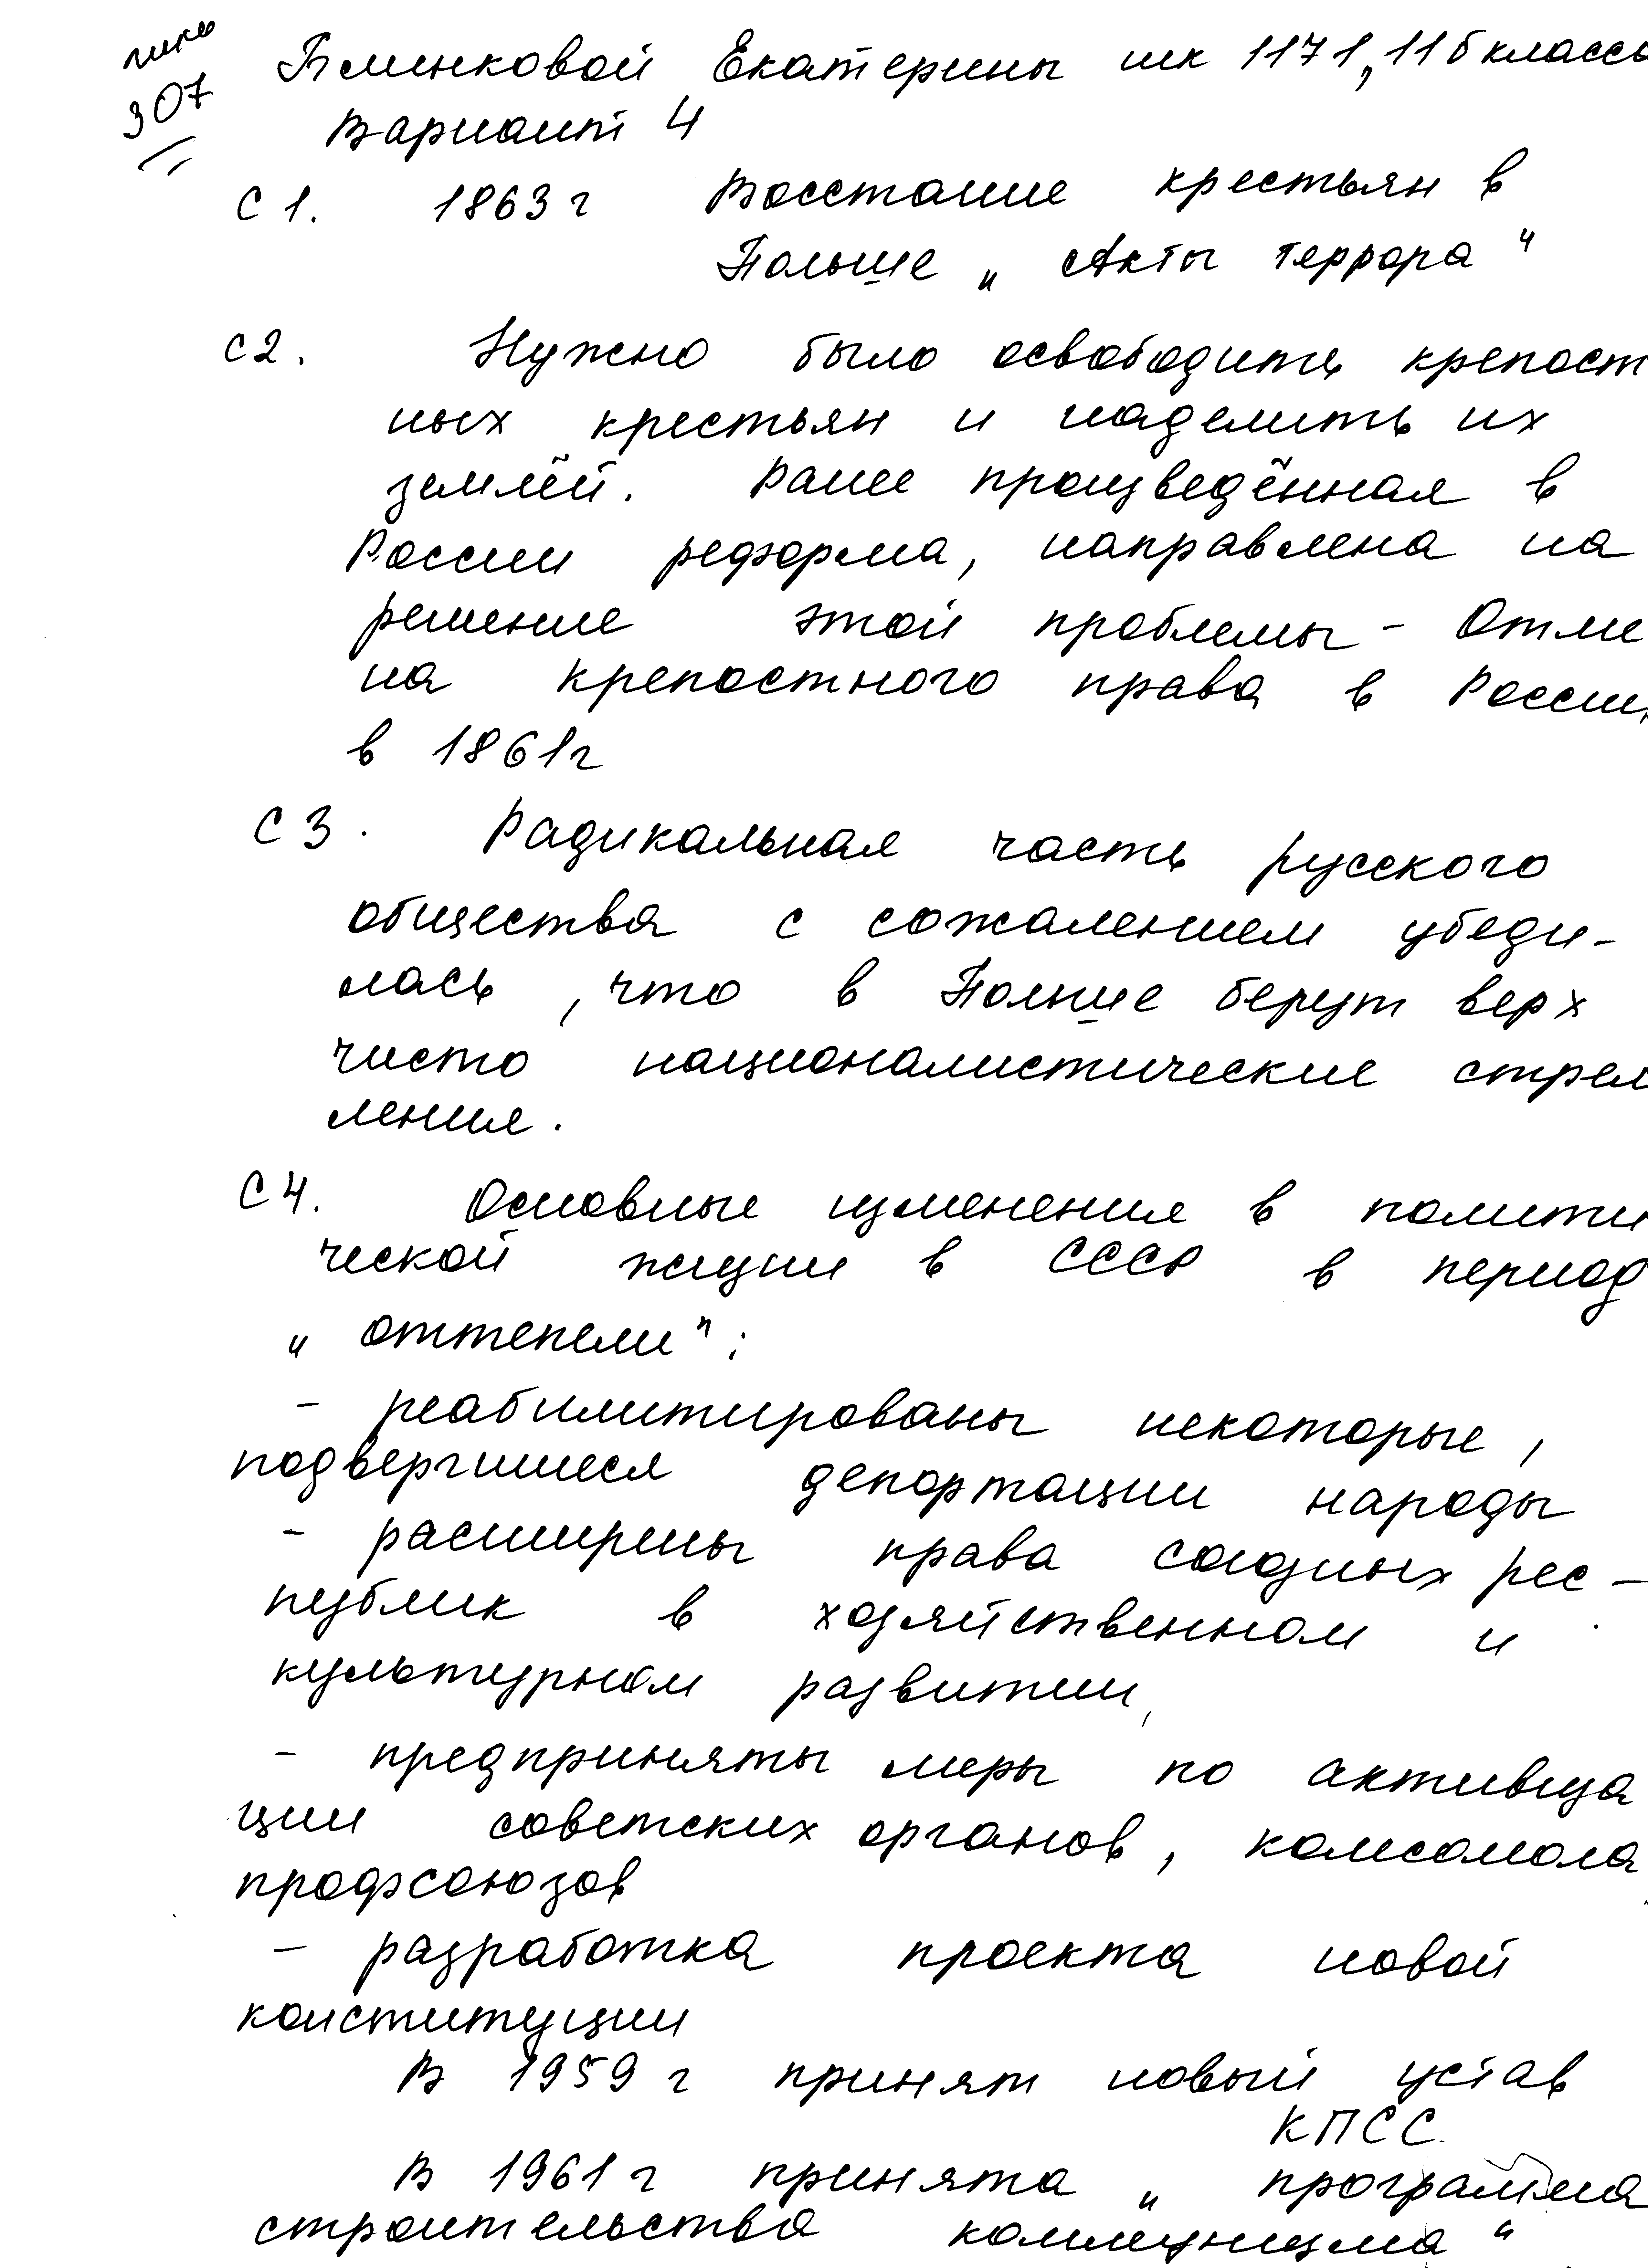 307
Екатерины шк 1171, 11б класс
Вариант 4
С1. 1863 г Восстание крестьян в
Польше „Акты террора"
С2. Нужно было освободить крепост
ных крестьян и наделить их
землёй. Ранее произведённая в
России реформа, направлена на
решение этой проблемы - Отме
на крепостного права в России
в 1861г
С3. Радикальная часть русского
общества с сожалением убеди-
лась, что в Польше берут верх
чисто националистические стрем
ления.
С4. Основные изменения в полити
ческой жизни в СССР в период
„оттепели":
- реабилитированы некоторые,
подвергшиеся депортации народы
- расширены права союзных рес-
публик в хозяйственном и
культурном развитии,
- предприняты меры по активиза
ции советских органов, комсомола,
профсоюзов
- разработка проекта новой
конституции
В 1959 г принят новый устав
КПСС.
В 1961 г принята „программа
строительства коммунизма"